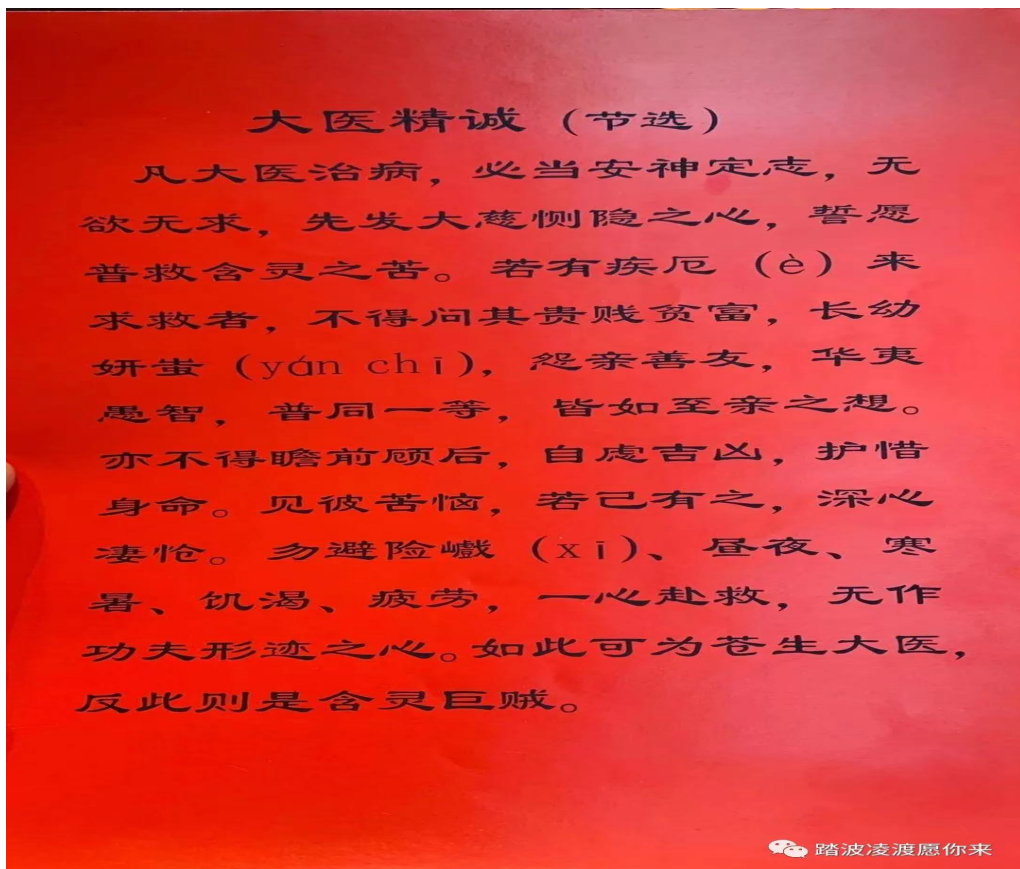 大医精诚（节选）
凡大医治病，必当安神定志，无
欲无求，先发大慈恻隐之心，誓愿
普救含灵之苦。若有疾厄（è）来
求救者，不得问其贵贱贫富，长幼
妍蚩（yán chī），怨亲善友，华夷
愚智，普同一等，皆如至亲之想。
亦不得瞻前顾后，自虑吉凶，护惜
身命。见彼苦恼，若己有之，深心
凄怆。勿避险巇（xī）、昼夜、寒
暑、饥渴、疲劳，一心赴救，无作
功夫形迹之心。如此可为苍生大医，
反此则是含灵巨贼。
踏波凌渡愿你来